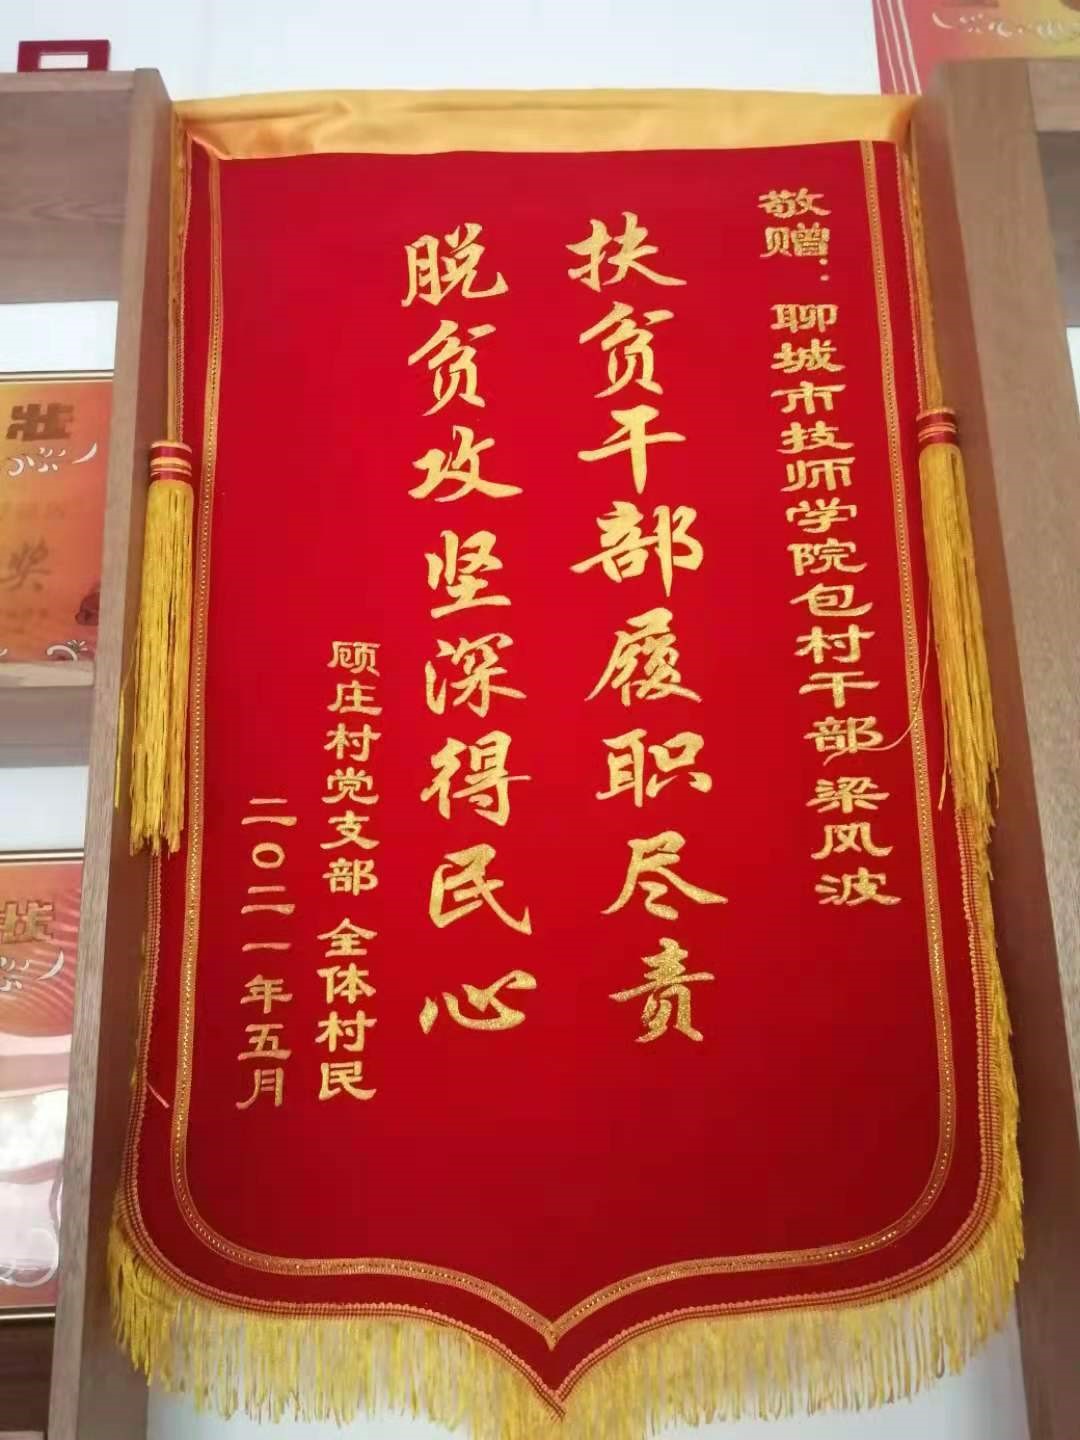 敬赠：聊城市技师学院包村干部梁风波
扶贫干部履职尽责
脱贫攻坚深得民心
顾庄村党支部 全体村民
二〇二一年五月
状
奖
状